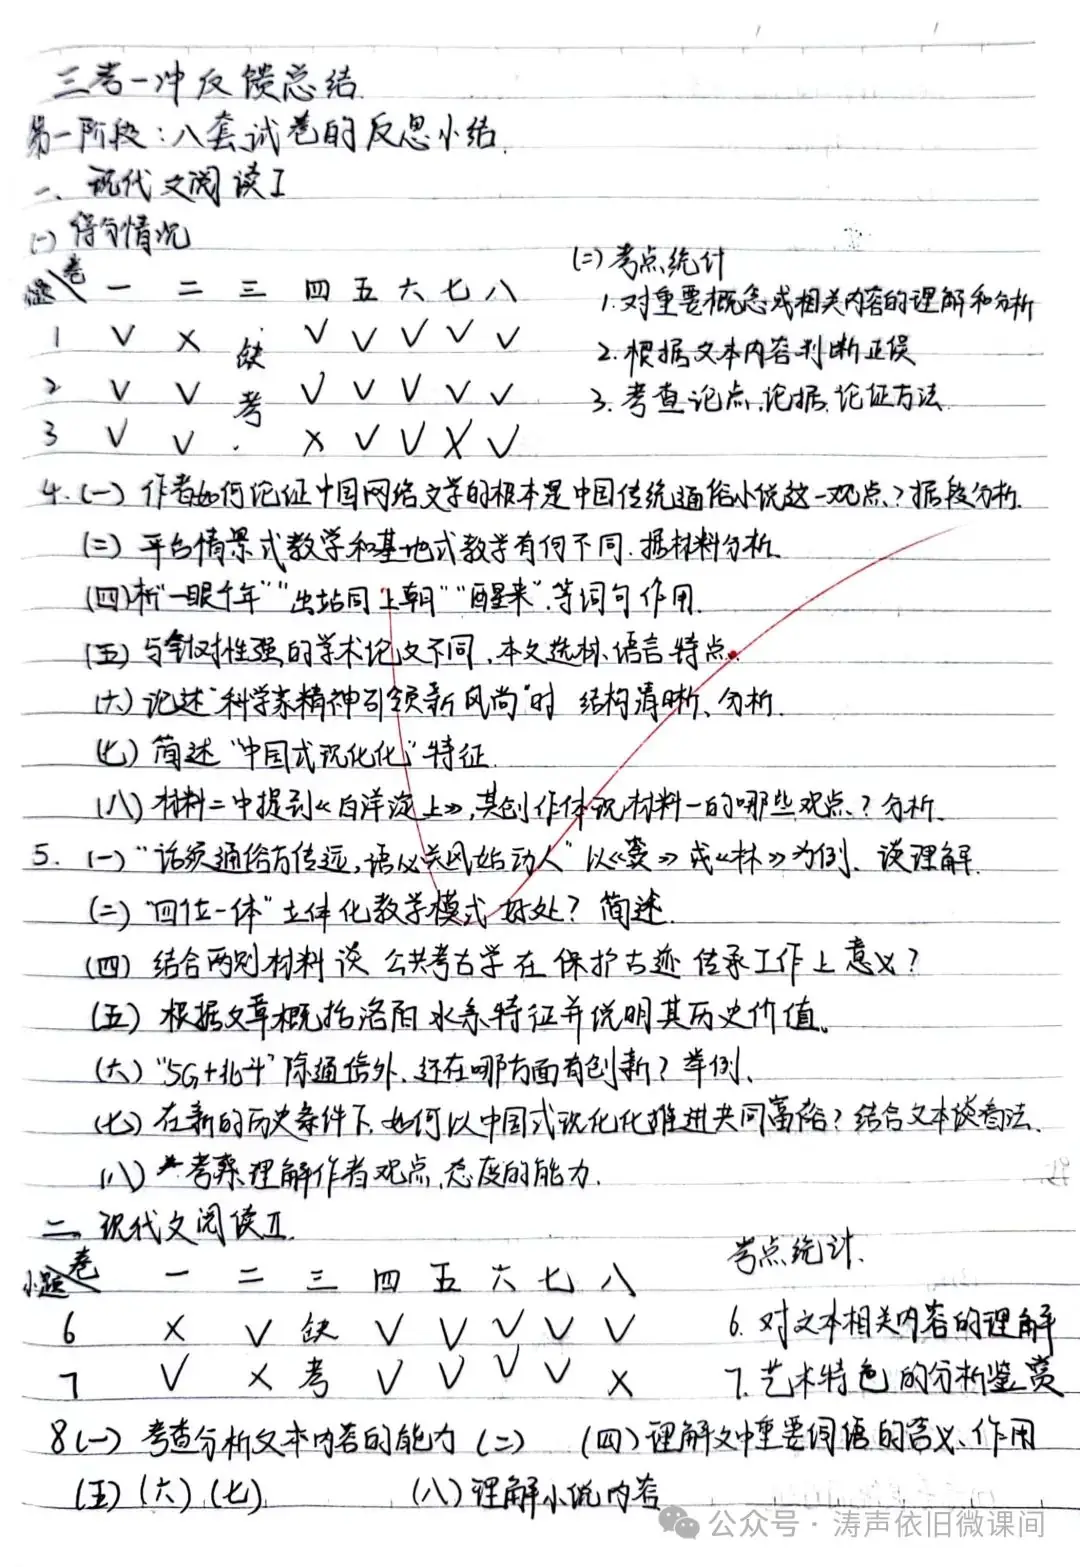 三考一冲反馈总结.
第一阶段:八套试卷的反思小结.
一、现代文阅读I
(一)得分情况
(二)考点统计
小题 卷 一 二 三 四 五 六 七 八
1.对重要概念或相关内容的理解和分析
1 V X 缺 V V V V V
2.根据文本内容判断正误
2 V V 考 V V V V V
3.考查论点、论据、论证方法.
3 V V X V V X V
4.(一)作者如何论证中国网络文学的根本是中国传统通俗小说这一观点?据段分析.
(二)平台情景式教学和基地式教学有何不同.据材料分析.
(四)析"一眼千年""出站同上朝""醒来".等词句作用.
(五)与针对性强的学术论文不同.本文选材、语言特点.
(六)论述"科学家精神引领新风尚"时 结构清晰、分析.
(七)简述"中国式现代化"特征
(八)材料二中提到《白洋淀上》,其创作体现材料一的哪些观点?分析.
5.(一)"话须通俗方传远,语必关风始动人"以《袭》或《林》为例、谈理解.
(二)"四位一体"立体化教学模式 好处? 简述.
(四)结合两则材料谈 公共考古学在保护古迹传承工作上意义?
(五)根据文章概括洛阳水系特征并说明其历史价值。
(六)"5G+北斗"除通信外、还在哪方面有创新?举例、
(七)在新的历史条件下,如何以中国式现代化推进共同富裕?结合文本谈看法、
(八)考察理解作者观点、态度的能力.
二、现代文阅读II.
考点统计.
小题 卷 一 二 三 四 五 六 七 八
6 X V 缺 V V V V V
6.对文本相关内容的理解
7 V X 考 V V V V X
7.艺术特色的分析鉴赏
8(一)考查分析文本内容的能力(二) (四)理解文中重要词语的含义、作用
(五)(六)(七) (八)理解小说内容
公众号·涛声依旧微课间